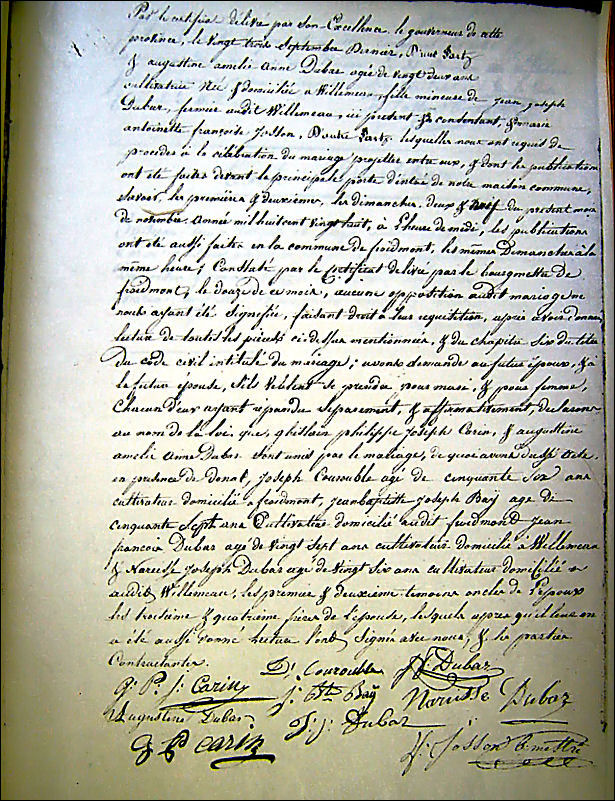 Par le certificat délivré par son Excellence le gouverneur de cette
province, le vingt trois Septembre Dernier, D'une Partz
& augustine amelie Anne Dubar agée de vingt deux ans
cultivatrice Née & domiciliée a Willemeau, fille mineure de Jean Joseph
Dubar, fermier audit Willemeau, ici present & consentant, & marie
antoinette françoise Josson, D'autre Partz lesquelles nous ont requis de
proceder à la célébration du mariage projetter entre eux, & dont les publications
ont été faites devant la principale porte d'entrée de notre maison commune,
Savoir, les premiere & deuxieme, les dimanches, deux & neuf du present mois
de novembre année mil huit cent vingt huit, à l'heure de midi, les publications
ont été aussi faites en la commune de froidmont, les mêmes Dimanches à la
même heure; Constaté par le Certificat délivré par le bourgmettre de
froidmont, le douze de ce mois, aucune opposition audit mariage ne
nous ayant été signifiée, faisant droit à leur requisition, après avoir donné
lecture de toutes les pièces ci dessus mentionnées, & du chapitre Six du titre
du code civil intitulé du mariage; avons demandé au futur époux, & à
la future épouse, S'ils veulent se prendre pour mari, & pour femme,
Chacun d'eux ayant répondu Séparement, & affirmativement, declarons
au nom de la loi, que, ghislain philippe Joseph Carin, & augustine
amelie Anne Dubar Sont unis par le mariage, de quoi avons dressé acte
en presence de Donat, Joseph Courouble agé de cinquante Six ans
cultivateur domicilié a froidmont, jean baptiste Joseph Baÿ age de
cinquante Sept ans Cultivateur domicilié audit froidmond Jean
francois Dubar agé de vingt Sept ans cultivateur domicilié à Willemeau
& Narcisse Joseph Dubar agé de vingt Six ans cultivateur domicilié a
audit Willemeau, les premier & deuxieme temoins oncles de l'epoux
les troisième & quatrième frères de l'epouse, lesquels apres qu'il leur en
a été aussi donné Lecture l'ont Signé avec nous, & les parties
Contractantes.
g. P. J. Carin D. Courouble J. f. Dubar
J. Bte Baÿ Narcisse Dubar
Augustine Dubar J. J. Dubar
Carin f. Josson B. mettre